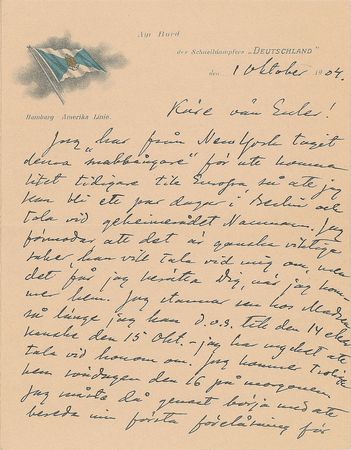 An Bord
des Schnelldampfers „DEUTSCHLAND“
den 1 Oktober 1904.
Hamburg Amerika Linie.
Käre von Euler!
Jag har från New York tagit
denna "snabbångare" för att komma
litet tidigare till Europa så att jag
kan bli ett par dagar i Berlin och
tala vid geheimerådet Naumann. Jag
förmodar att det är ganska viktiga
saker han vill tala vid mig om, men
det får jag berätta Dig, när jag kom-
mer hem. Jag stannar sen hos
så länge jag kan d.v.s. till den 14 eller
kanske den 15 Okt. – jag har mycket att
tala vid honom om. Jag kommer
hem söndagen den 16 på morgonen.
Jag måste då genast börja med att
bereda min första föreläsning för